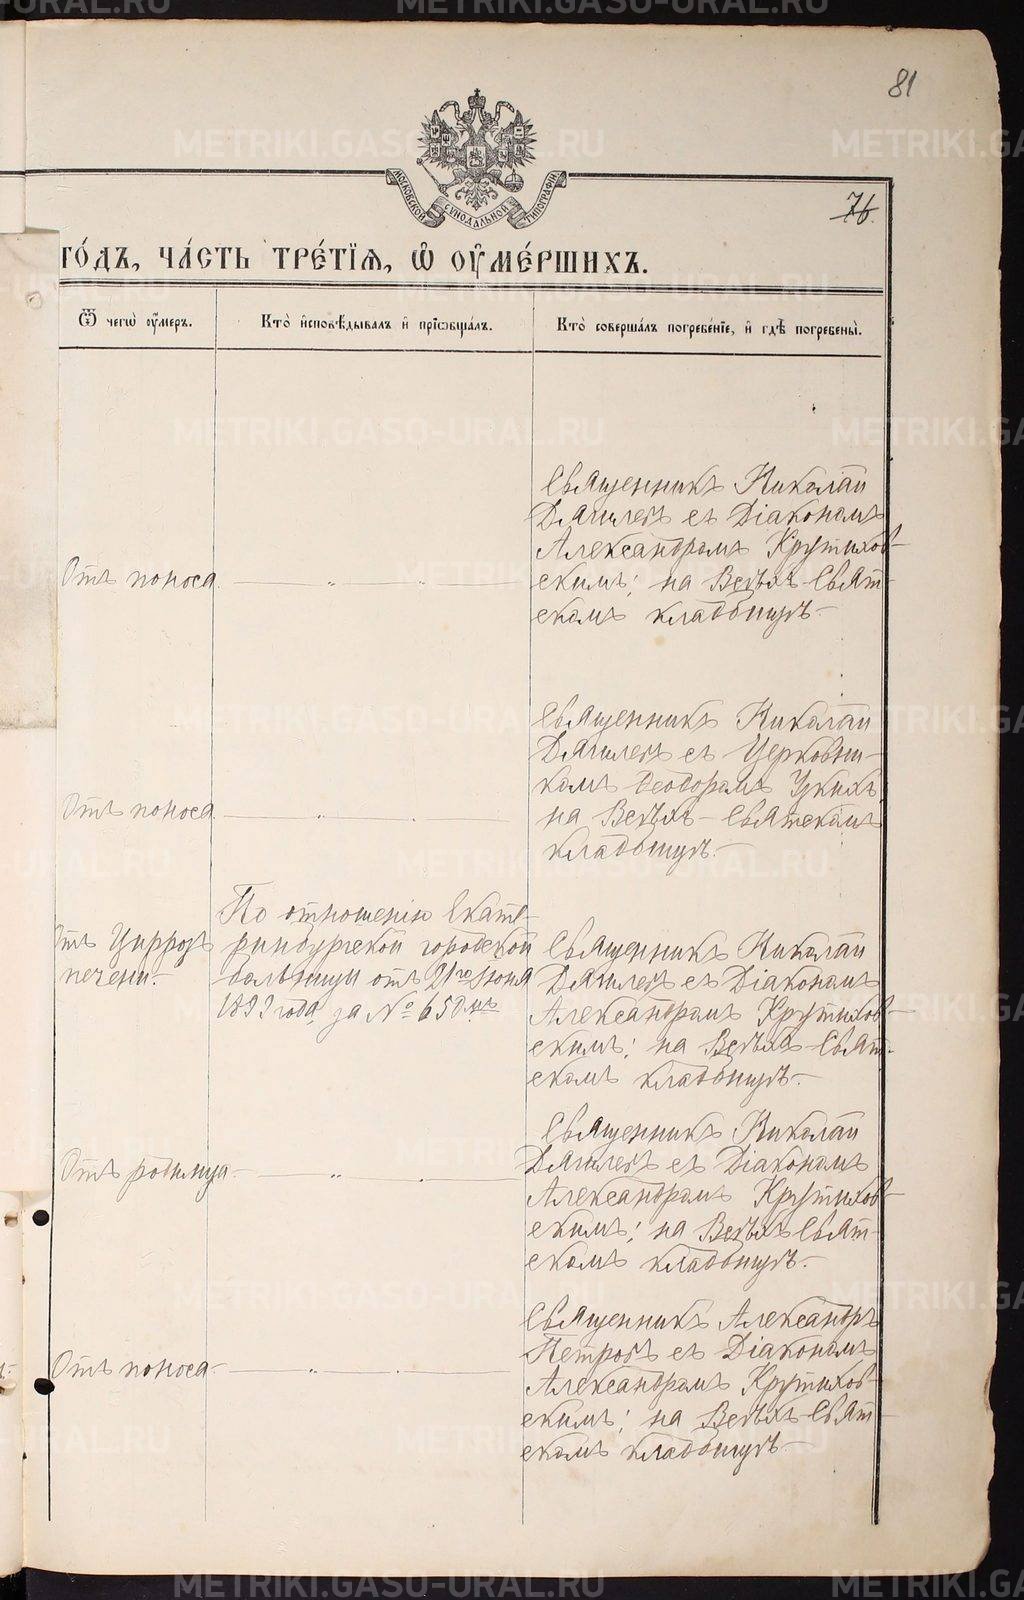 81
МОСКОВСКОЙ СѴНОДАЛЬНОЙ ТИПОГРАФІИ
76.
го́дъ, ча́сть тре́тїѧ, ѽ оу҆ме́ршихъ.
Ѿ чегѡ̀ оу҆́меръ.
Кто̀ и҆сповѣ́дывалъ и҆ прїѻбща́лъ.
Кто̀ соверша́лъ погребе́нїе, и҆ гдѣ̀ погребены̀.
Отъ поноса
Священникъ Николай
Дягилевъ съ Діакономъ
Александромъ Крутихов-
скимъ; на Всѣхъ-Свят-
скомъ кладбищѣ.-
Отъ поноса
Священникъ Николай
Дягилевъ съ Церковни-
комъ Ѳеодоромъ Ункихъ
на Всѣхъ-Святскомъ
кладбищѣ.-
Отъ Циррозъ
печени.-
По отношенію Екате-
ринбургской городской
больницы отъ 21го Іюня
1899 года за № 650мъ
Священникъ Николай
Дягилевъ съ Діакономъ
Александромъ Крутихов-
скимъ; на Всѣхъ-Свят-
скомъ кладбищѣ.-
Отъ родимца-
Священникъ Николай
Дягилевъ съ Діакономъ
Александромъ Крутихов-
скимъ; на Всѣхъ-Свят-
скомъ кладбищѣ.-
Отъ поноса-
Священникъ Александръ
Петровъ съ Діакономъ
Александромъ Крутихов-
скимъ; на Всѣхъ-Свят-
скомъ кладбищѣ.-
METRIKI.GASO-URAL.RU